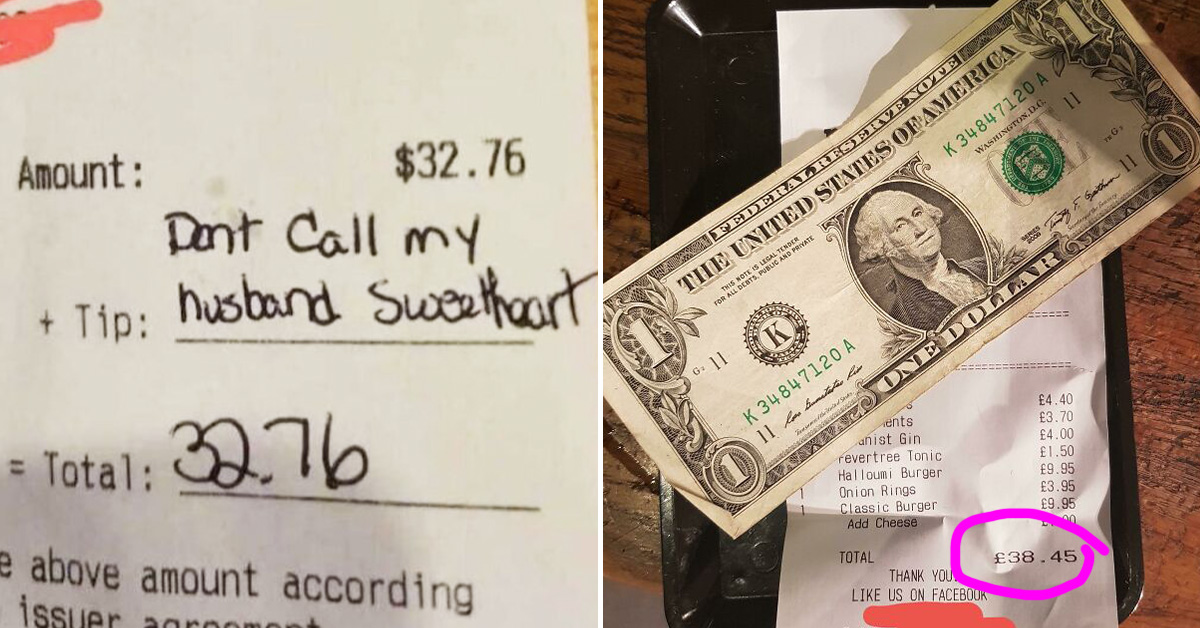 Amount: $32.76
Dont Call my
+ Tip: husband Sweetheart
= Total: 32.76
above amount according
issuer agreement
FEDERAL RESERVE NOTE
THE UNITED STATES OF AMERICA
THIS NOTE IS LEGAL TENDER
FOR ALL DEBTS, PUBLIC AND PRIVATE
K 34847120 A
WASHINGTON, D.C.
11
1
1
G2 11
K
K 34847120 A
11
11
SERIES
2009
ONE DOLLAR
1
1
£4.40
£3.70
Gin £4.00
Tonic £1.50
Halloumi Burger £9.95
1 Onion Rings £3.95
1 Classic Burger £9.95
Add Cheese
TOTAL £38.45
THANK YOU
LIKE US ON FACEBOOK